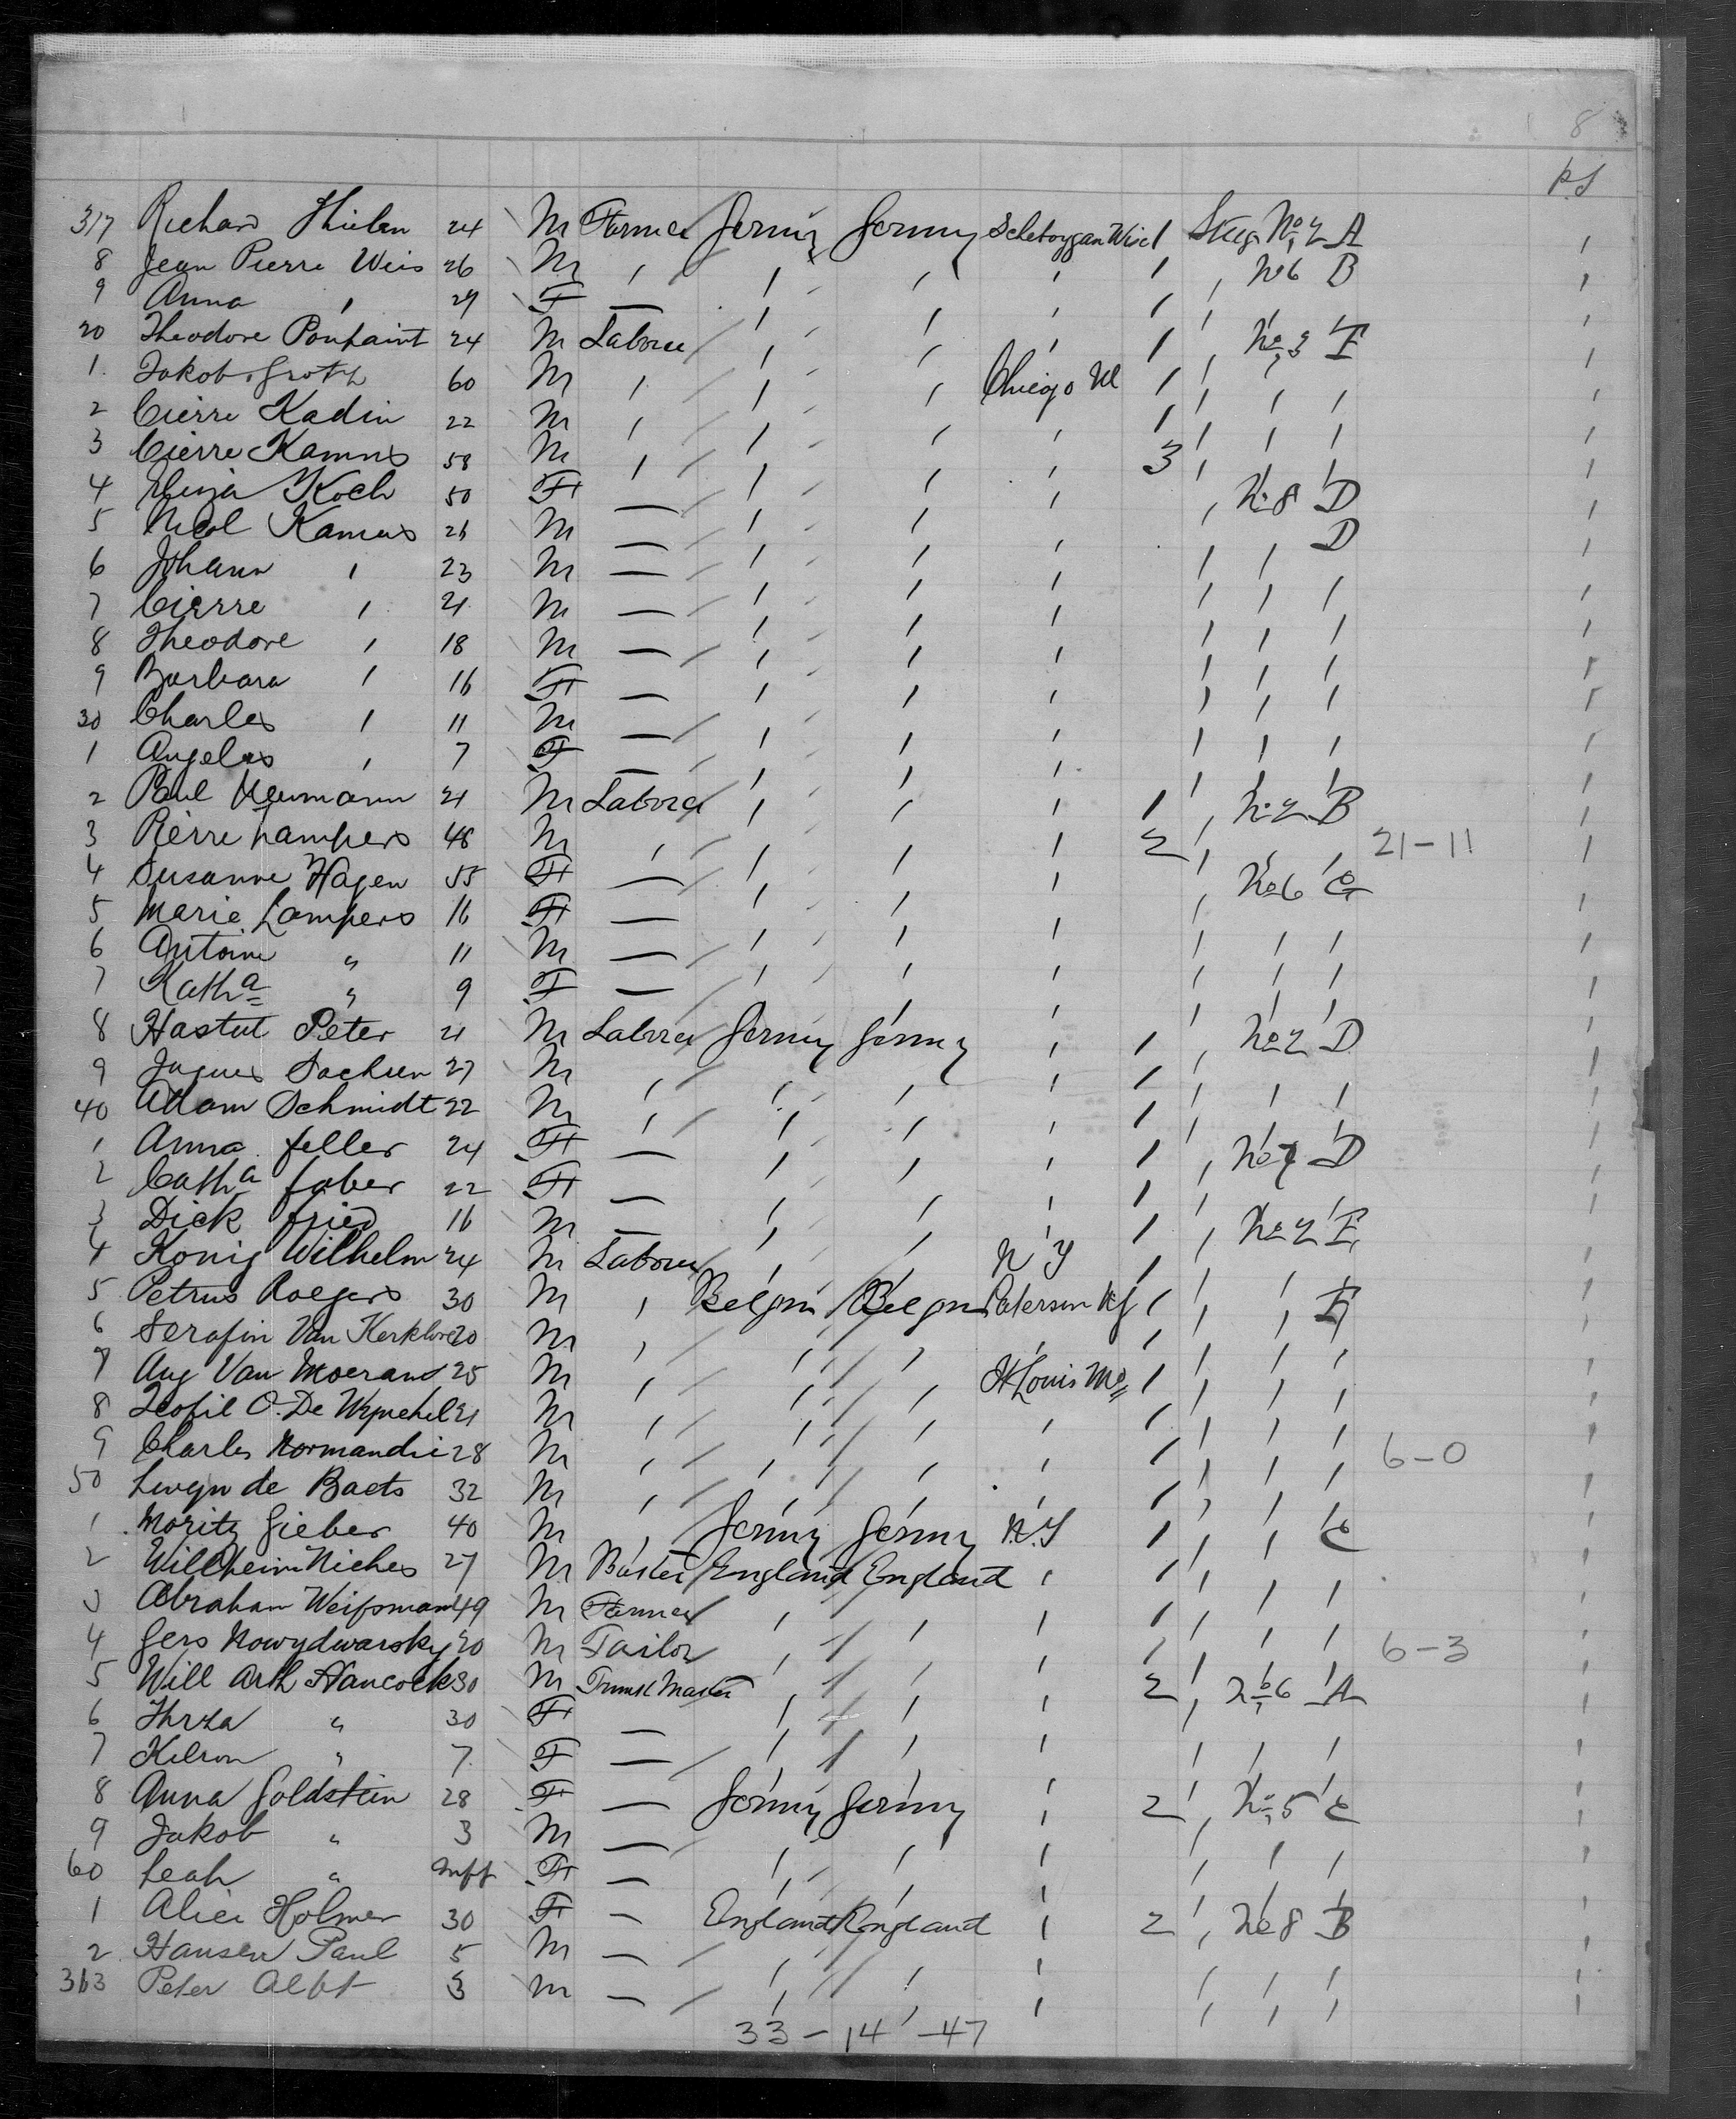 8
317 Richard Thielen 24 M Farmer Germy Germy Scheboygan Wisc 1 Steeg No 2 A
8 Jean Pierre Weis 26 M " " " " 1 " No 6 B
9 Anna " 29 F — " " " 1 "
20 Theodore 24 M Laborer " " " 1 " No 3 E
1 Jakob Groth 60 M " " " Chicago Ill 1 " " "
2 Cierre Kadin 22 M " " " " 1 " " "
3 Cierre Kamns 58 M " " " " 3 "
4 Koch 50 F — " " " " No 8 D
5 Nicol Kamus 26 M — " " " D
6 Johann " 23 M — " " " " " "
7 Cierre " 21 M — " " " " " "
8 Theodore " 18 M — " " " " " "
9 Barbara " 16 F — " " " " " "
30 Charles " 11 M — " " " " " "
1 Angelas " 7 F — " " " " " "
2 Paul Neumann 21 M Laborer " " " 1 " No 2 B
3 Pierre Lampers 48 M " " " " 2 " " " 21-11
4 Susanne Hagen 55 F — " " " " No 6 C
5 Marie Lampers 16 F — " " " " " "
6 Antoine " 11 M — " " " " " "
7 Katha " 9 F — " " " " " "
8 Hastut Peter 21 M Laborer Germy Germy " 1 " No 2 D
9 Jaques Sachsen 27 M " " " " 1 " " "
40 Adam Schmidt 22 M " " " " 1 "
1 Anna feller 24 F — " " " 1 " No 7 D
2 Catha faber 22 F — " " " 1 "
3 Dick fried 16 M — " " " 1 " No 2 E
4 Konig Wilhelm 24 M Laborer " " N Y 1 " " "
5 Petrus Roegers 30 M " Belgm Belgm Paterson NJ 1 " " E
6 Serafin Van Kerkhove 20 M " " " " 1 " " "
7 Aug Van Moerans 25 M " " " St Louis Mo 1 " " "
8 Teofil O. De 21 M " " " " 1 " " "
9 Charles Normandie 28 M " " " " 1 " " " 6-0
50 de Baets 32 M " " " " 1 " " "
1 Moritz Gieber 40 M " Germy Germy N.Y 1 " " C
2 Willheim Niches 27 M England England " 1 " " "
3 Abraham Weissmann 49 M Farmer " " " 1 " " "
4 Gers Nowydwarsky 20 M Tailor " " " 1 " " " 6-3
5 Will Arth Hancock 30 M Trunk Master " " " 2 " No 6 A
6 Thrza " 30 F — " " "
7 " 7 F — " " " " " "
8 Anna Goldstein 28 F — Germy Germy " 2 " No 5 C
9 Jakob " 3 M — " " " " " "
60 Leah " Inft F — " " " " " "
1 Alice Holmer 30 F — England England " 2 " No 8 B
2 Hansen Paul 5 M — " " " " " "
363 Peter Albt 3 M — " " " " " "
33-14-47